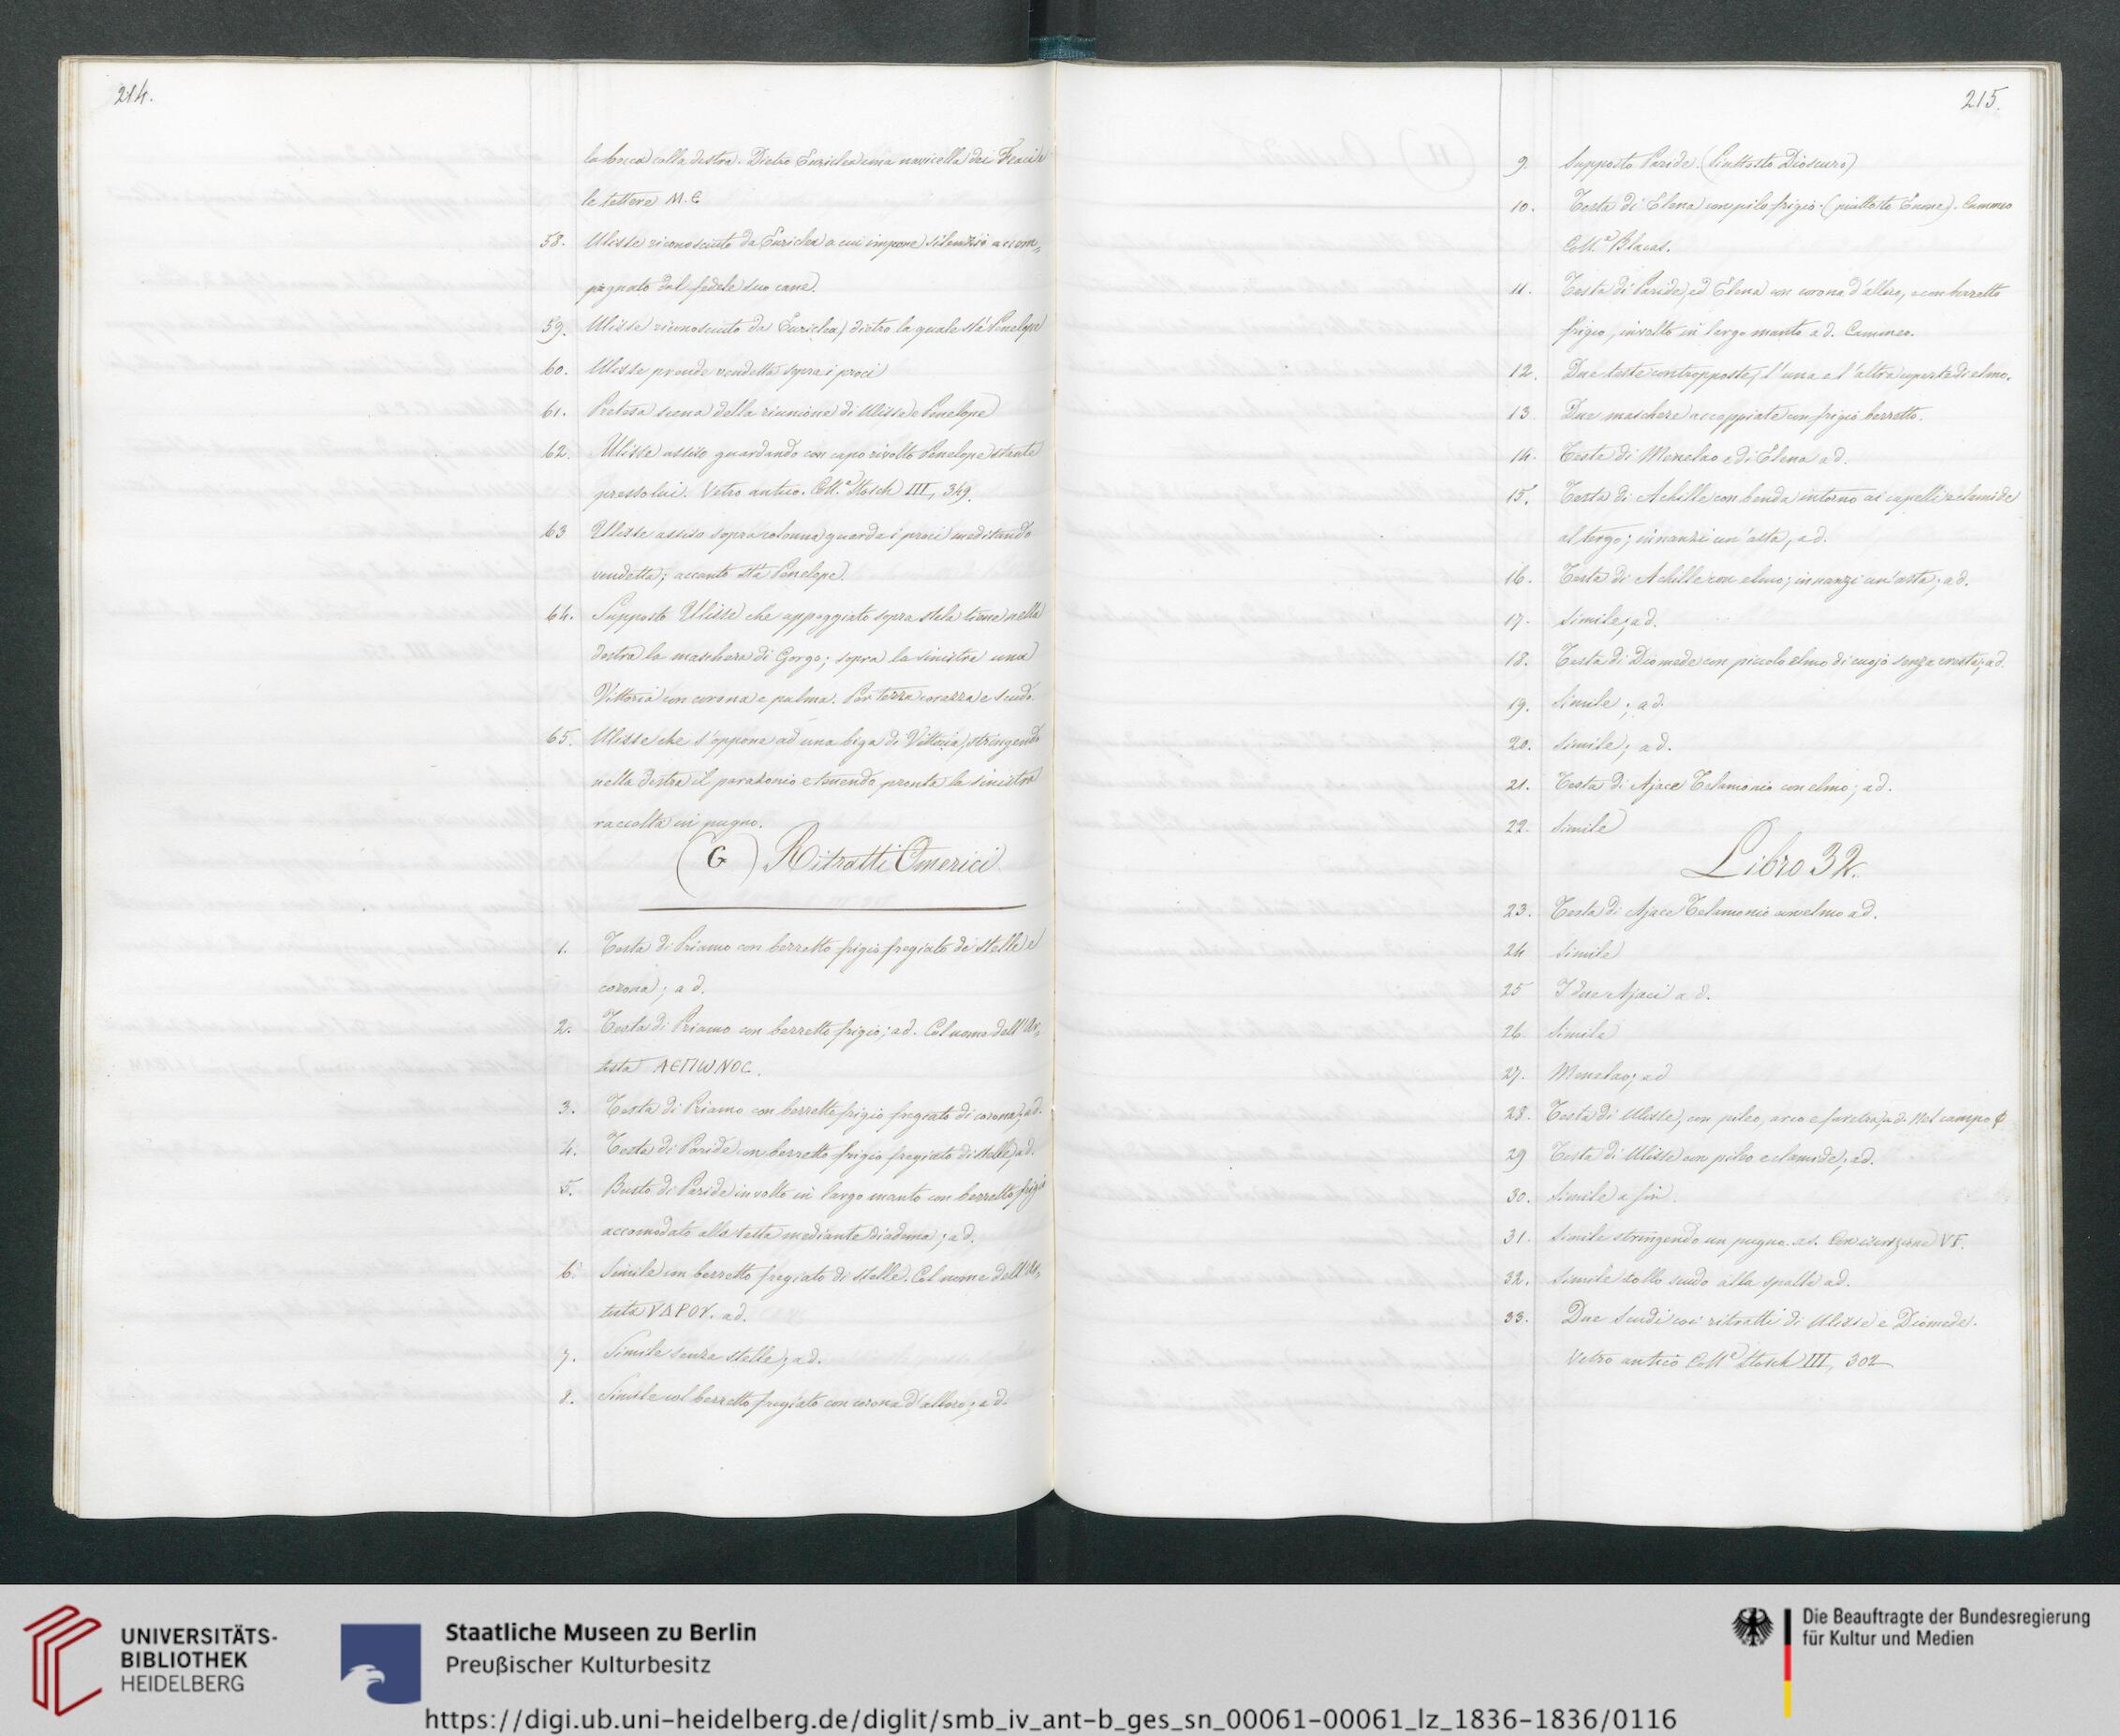 214.
la bocca colla destra. Dietro Euriclea una navicella dei Feaci e
le lettere M.C
58. Ulisse riconosciuto da Euriclea a cui impone silenzio accom-
pagnato dal fedele suo cane.
59. Ulisse riconosciuto da Euriclea, dietro la quale stà Penelope
60. Ulisse prende vendetta sopra i proci
61. Pretesa scena della riunione di Ulisse e Penelope
62. Ulisse assiso guardando con capo rivolto Penelope stante
presso lui. Vetro antico. Coll.e Stosch III, 349.
63 Ulisse assiso sopra colonna guarda i proci meditando
vendetta; accanto stà Penelope.
64. Supposto Ulisse che appoggiato sopra stela tiene nella
destra la maschera di Gorgo; sopra la sinistra una
Vittoria con corona e palma. Per terra corazza e scudo.
65. Ulisse che s'oppone ad una biga di Vittoria, stringendo
nella destra il parazonio e tenendo pronta la sinistra
raccolta in pugno.
(G) Ritratti Omerici
1. Testa di Priamo con berretto frigio fregiato di stelle e
corona; a d.
2. Testa di Priamo con berretto frigio; a d. Col nome dell'Ar-
tista ΑΕΠΙΩΝΟC.
3. Testa di Priamo con berretto frigio fregiato di corona; a d.
4. Testa di Paride con berretto frigio fregiato di stelle; a d.
5. Busto di Paride involto in largo manto con berretto frigio
accomodato alla testa mediante diadema; a d.
6. Simile con berretto fregiato di stelle. Col nome dell'Ar-
tista VΔPOV. a d.
7. Simile senza stelle; a d.
8. Simile col berretto fregiato con corona d'alloro; a d.
215.
9. Supposto Paride. (Piuttosto Dioscuro)
10. Testa di Elena con pileo frigio. (piuttosto Enone). Cammeo
Coll.e Blacas.
11. Testa di Paride, ed Elena con corona d'alloro, e con berretto
frigio, involto in largo manto a d. Cammeo.
12. Due teste contropposte, l'una e l'altra coperte di elmo.
13 Due maschere accoppiate con frigio berretto.
14. Teste di Menelao e di Elena a d.
15. Testa di Achille con benda intorno ai capelli e clamide
al tergo; innanzi un'asta, a d.
16. Testa di Achille con elmo; innanzi un'asta; a d.
17. Simile; a d.
18. Testa di Diomede con piccolo elmo di cuojo senza cresta; a d.
19. Simile; a d.
20. Simile; a d.
21. Testa di Ajace Telamonio con elmo; a d.
22. Simile
Libro 32.
23. Testa di Ajace Telamonio con elmo a d.
24 Simile
25 I due Ajaci a d.
26. Simile
27. Menelao; a d
28. Testa di Ulisse, con pileo, arco e faretra; a d. Nel campo φ
29 Testa di Ulisse con pileo e clamide; a d.
30. Simile a sin.
31. Simile stringendo un pugno. a d. Con iscrizione VF.
32. Simile collo scudo alla spalla a d.
33. Due Scudi coi ritratti di Ulisse e Diomede.
Vetro antico Coll.e Stosch III, 302
UNIVERSITÄTS-
BIBLIOTHEK
HEIDELBERG
Staatliche Museen zu Berlin
Preußischer Kulturbesitz
Die Beauftragte der Bundesregierung
für Kultur und Medien
https://digi.ub.uni-heidelberg.de/diglit/smb_iv_ant-b_ges_sn_00061-00061_lz_1836-1836/0116